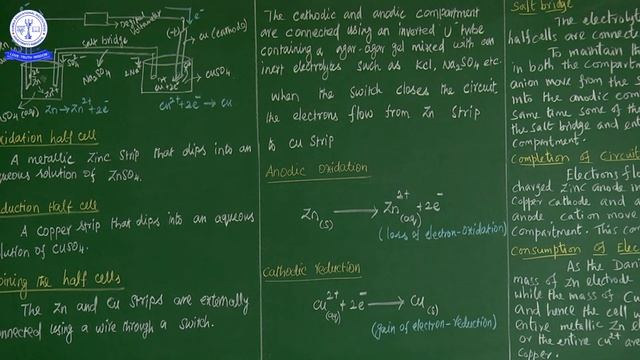 e⁻
Digital
voltmeter
e⁻
Salt bridge
(+)
Cu (cathode)
Na₂SO₄
CuSO₄
Zn → Zn²⁺ + 2e⁻
Cu²⁺ + 2e⁻ → Cu
oxidation half cell
A metallic Zinc strip that dips into an
aqueous solution of ZnSO₄.
Reduction Half cell
A copper strip that dips into an aqueous
solution of CuSO₄.
Joining the half cells
The Zn and Cu strips are externally
connected using a wire through a switch.
The cathodic and anodic compartment
are connected using an inverted U tube
containing a agar-agar gel mixed with an
inert electrolytes such as Kcl, Na₂SO₄ etc.
When the switch closes the circuit,
the electrons flow from Zn strip
to Cu strip
Anodic Oxidation
Zn(s) → Zn²⁺(aq) + 2e⁻
(loss of electron-oxidation)
Cathodic reduction
Cu²⁺(aq) + 2e⁻ → Cu(s)
(gain of electron-reduction)
Salt bridge
The electroly
half cells are connec
To maintain th
in both the compart
anion move from the s
into the anodic com
same time some of the
the salt bridge and ent
compartment.
Completion of Circui
Electrons flo
charged Zinc anode in
Copper cathode and a
anode, cation move
compartment. This co
Consumption of Elec
As the Dani
mass of Zn electrode
while the mass of C
and hence the cell w
entire metallic Zn el
or the entire Cu²⁺ are
copper.